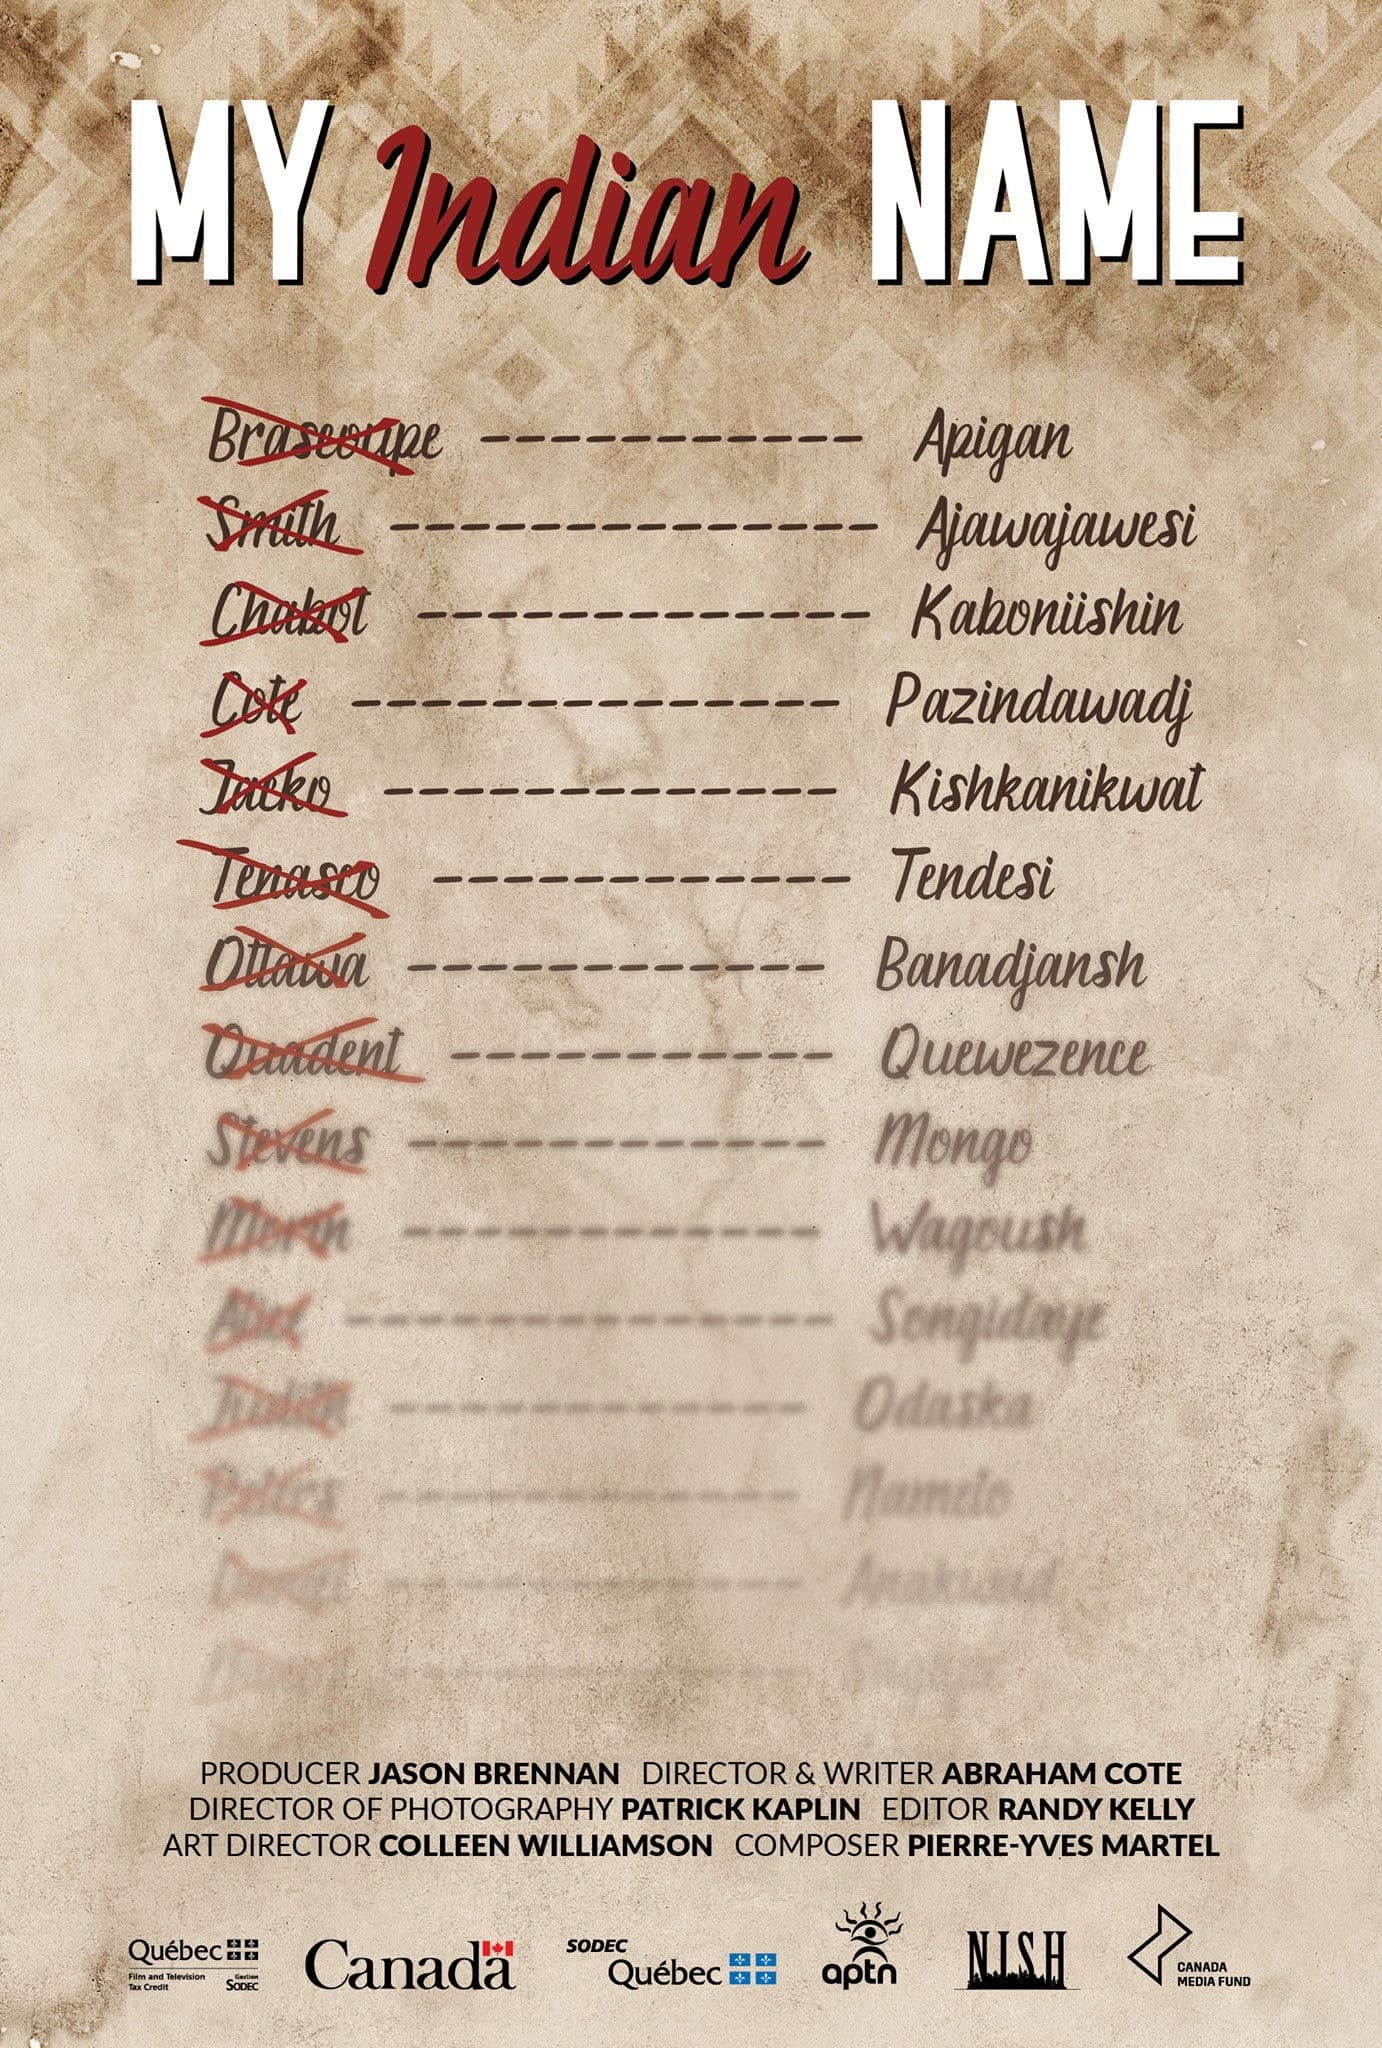 MY Indian NAME
Braseoupe ----------- Apigan
Smith -------------- Ajawajawesi
Chabot ------------- Kaboniishin
Cote -------------- Pazindawadj
Jacko ------------- Kishkanikwat
Tenasco ------------ Tendesi
Ottawa ------------ Banadjansh
Quadent ----------- Quewezence
Stevens ------------ Mongo
Morin ------------ Wagoush
-------------- Songidaye
Judith ------------ Odaska
------------ Nameto
PRODUCER JASON BRENNAN DIRECTOR & WRITER ABRAHAM COTE
DIRECTOR OF PHOTOGRAPHY PATRICK KAPLIN EDITOR RANDY KELLY
ART DIRECTOR COLLEEN WILLIAMSON COMPOSER PIERRE-YVES MARTEL
Québec
Film and Television
Tax Credit
Gestion
SODEC
Canada
SODEC
Québec
aptn
NISH
CANADA
MEDIA FUND